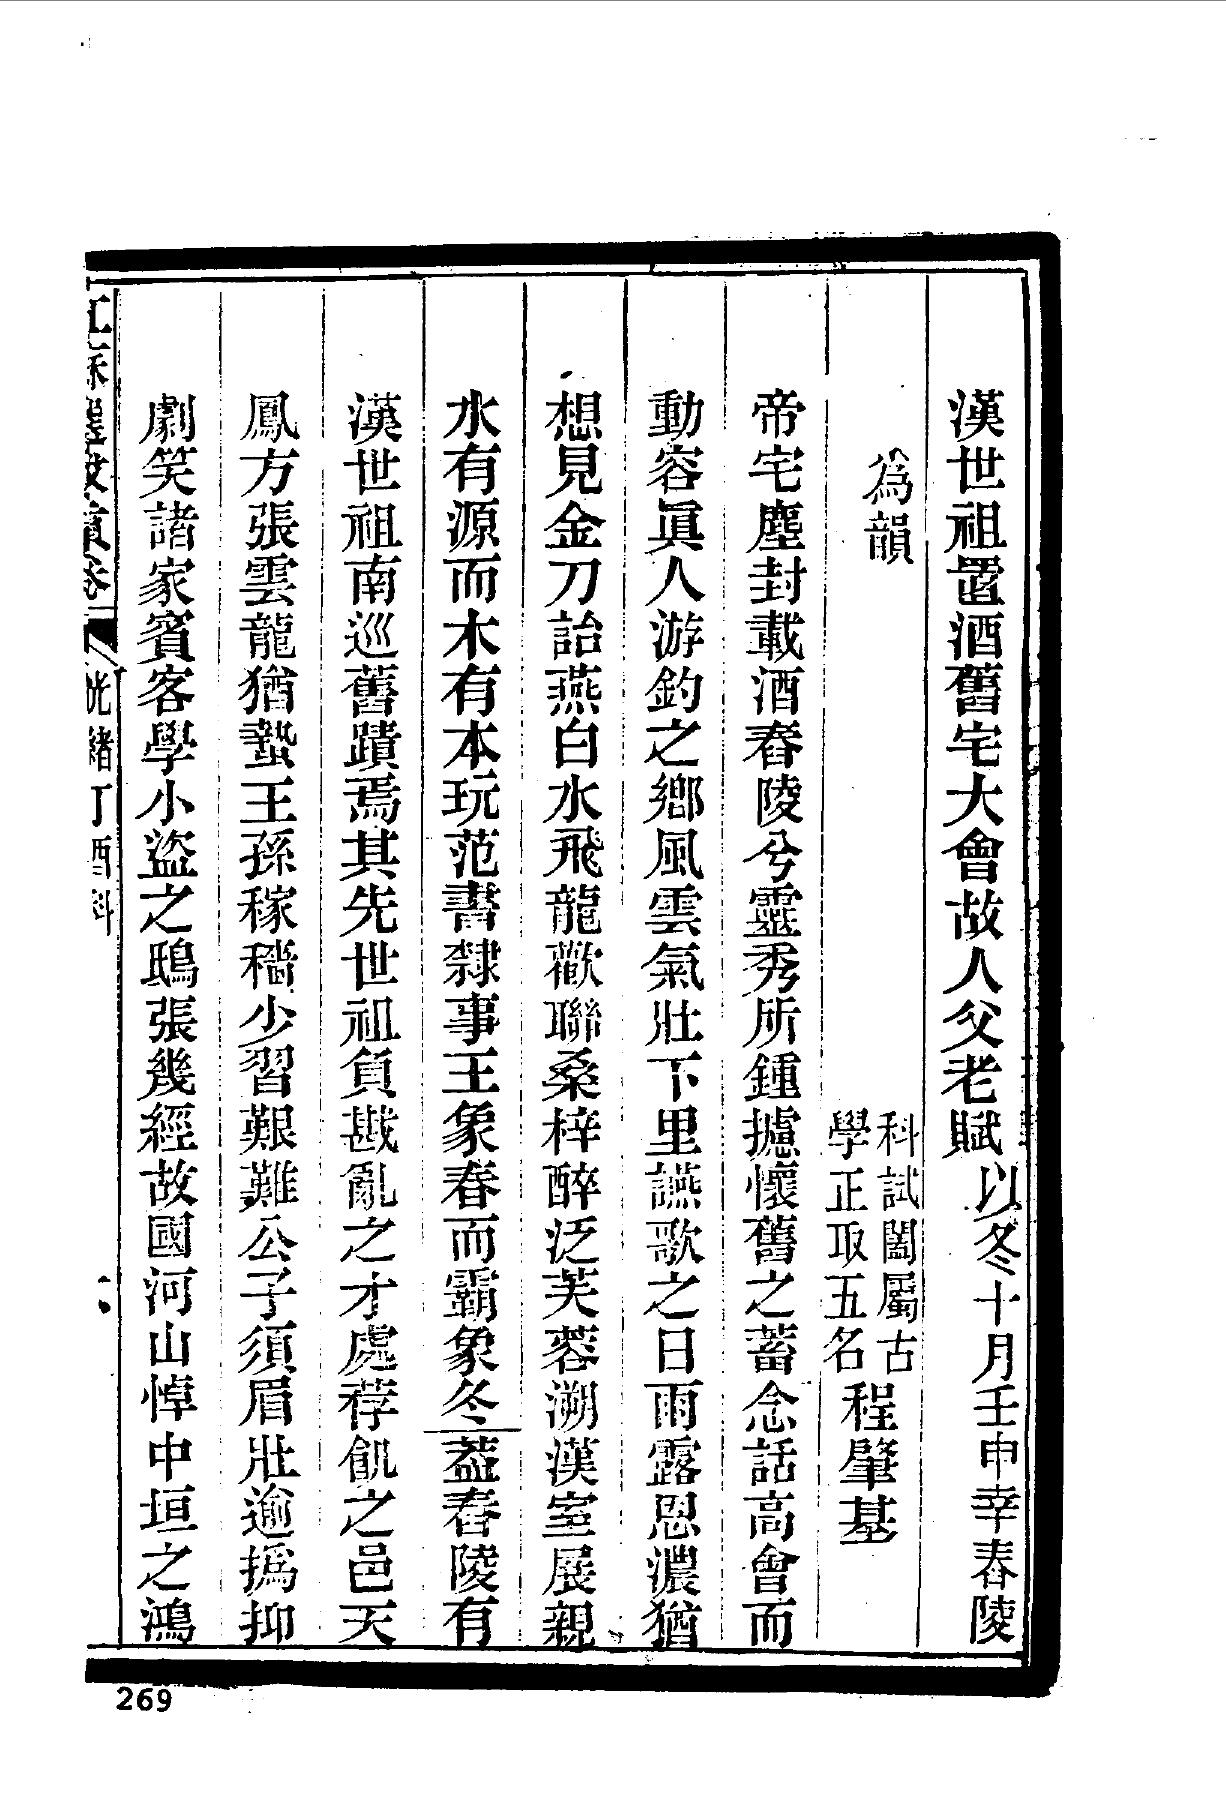 漢世祖置酒舊宅大會故人父老賦以冬十月壬申幸舂陵
為韻
科試闔屬古
學正取五名
程肇基
帝宅塵封載酒舂陵兮靈秀所鍾攄懷舊之蓄念話高會而
動容眞人游釣之鄉風雲氣壯下里讌歌之日雨露恩濃猶
想見金刀詒燕白水飛龍歡聯桑梓醉泛芙蓉溯漢室展親
水有源而木有本玩范書隸事王象春而霸象冬蓋舂陵有
漢世祖南巡舊蹟焉其先世祖負戡亂之才處荐飢之邑天
鳳方張雲龍猶蟄王孫稼穡少習艱難公子須眉壯逾撝抑
劇笑諸家賓客學小盜之鴟張幾經故國河山悼中垣之鴻
光緒丁酉科
269